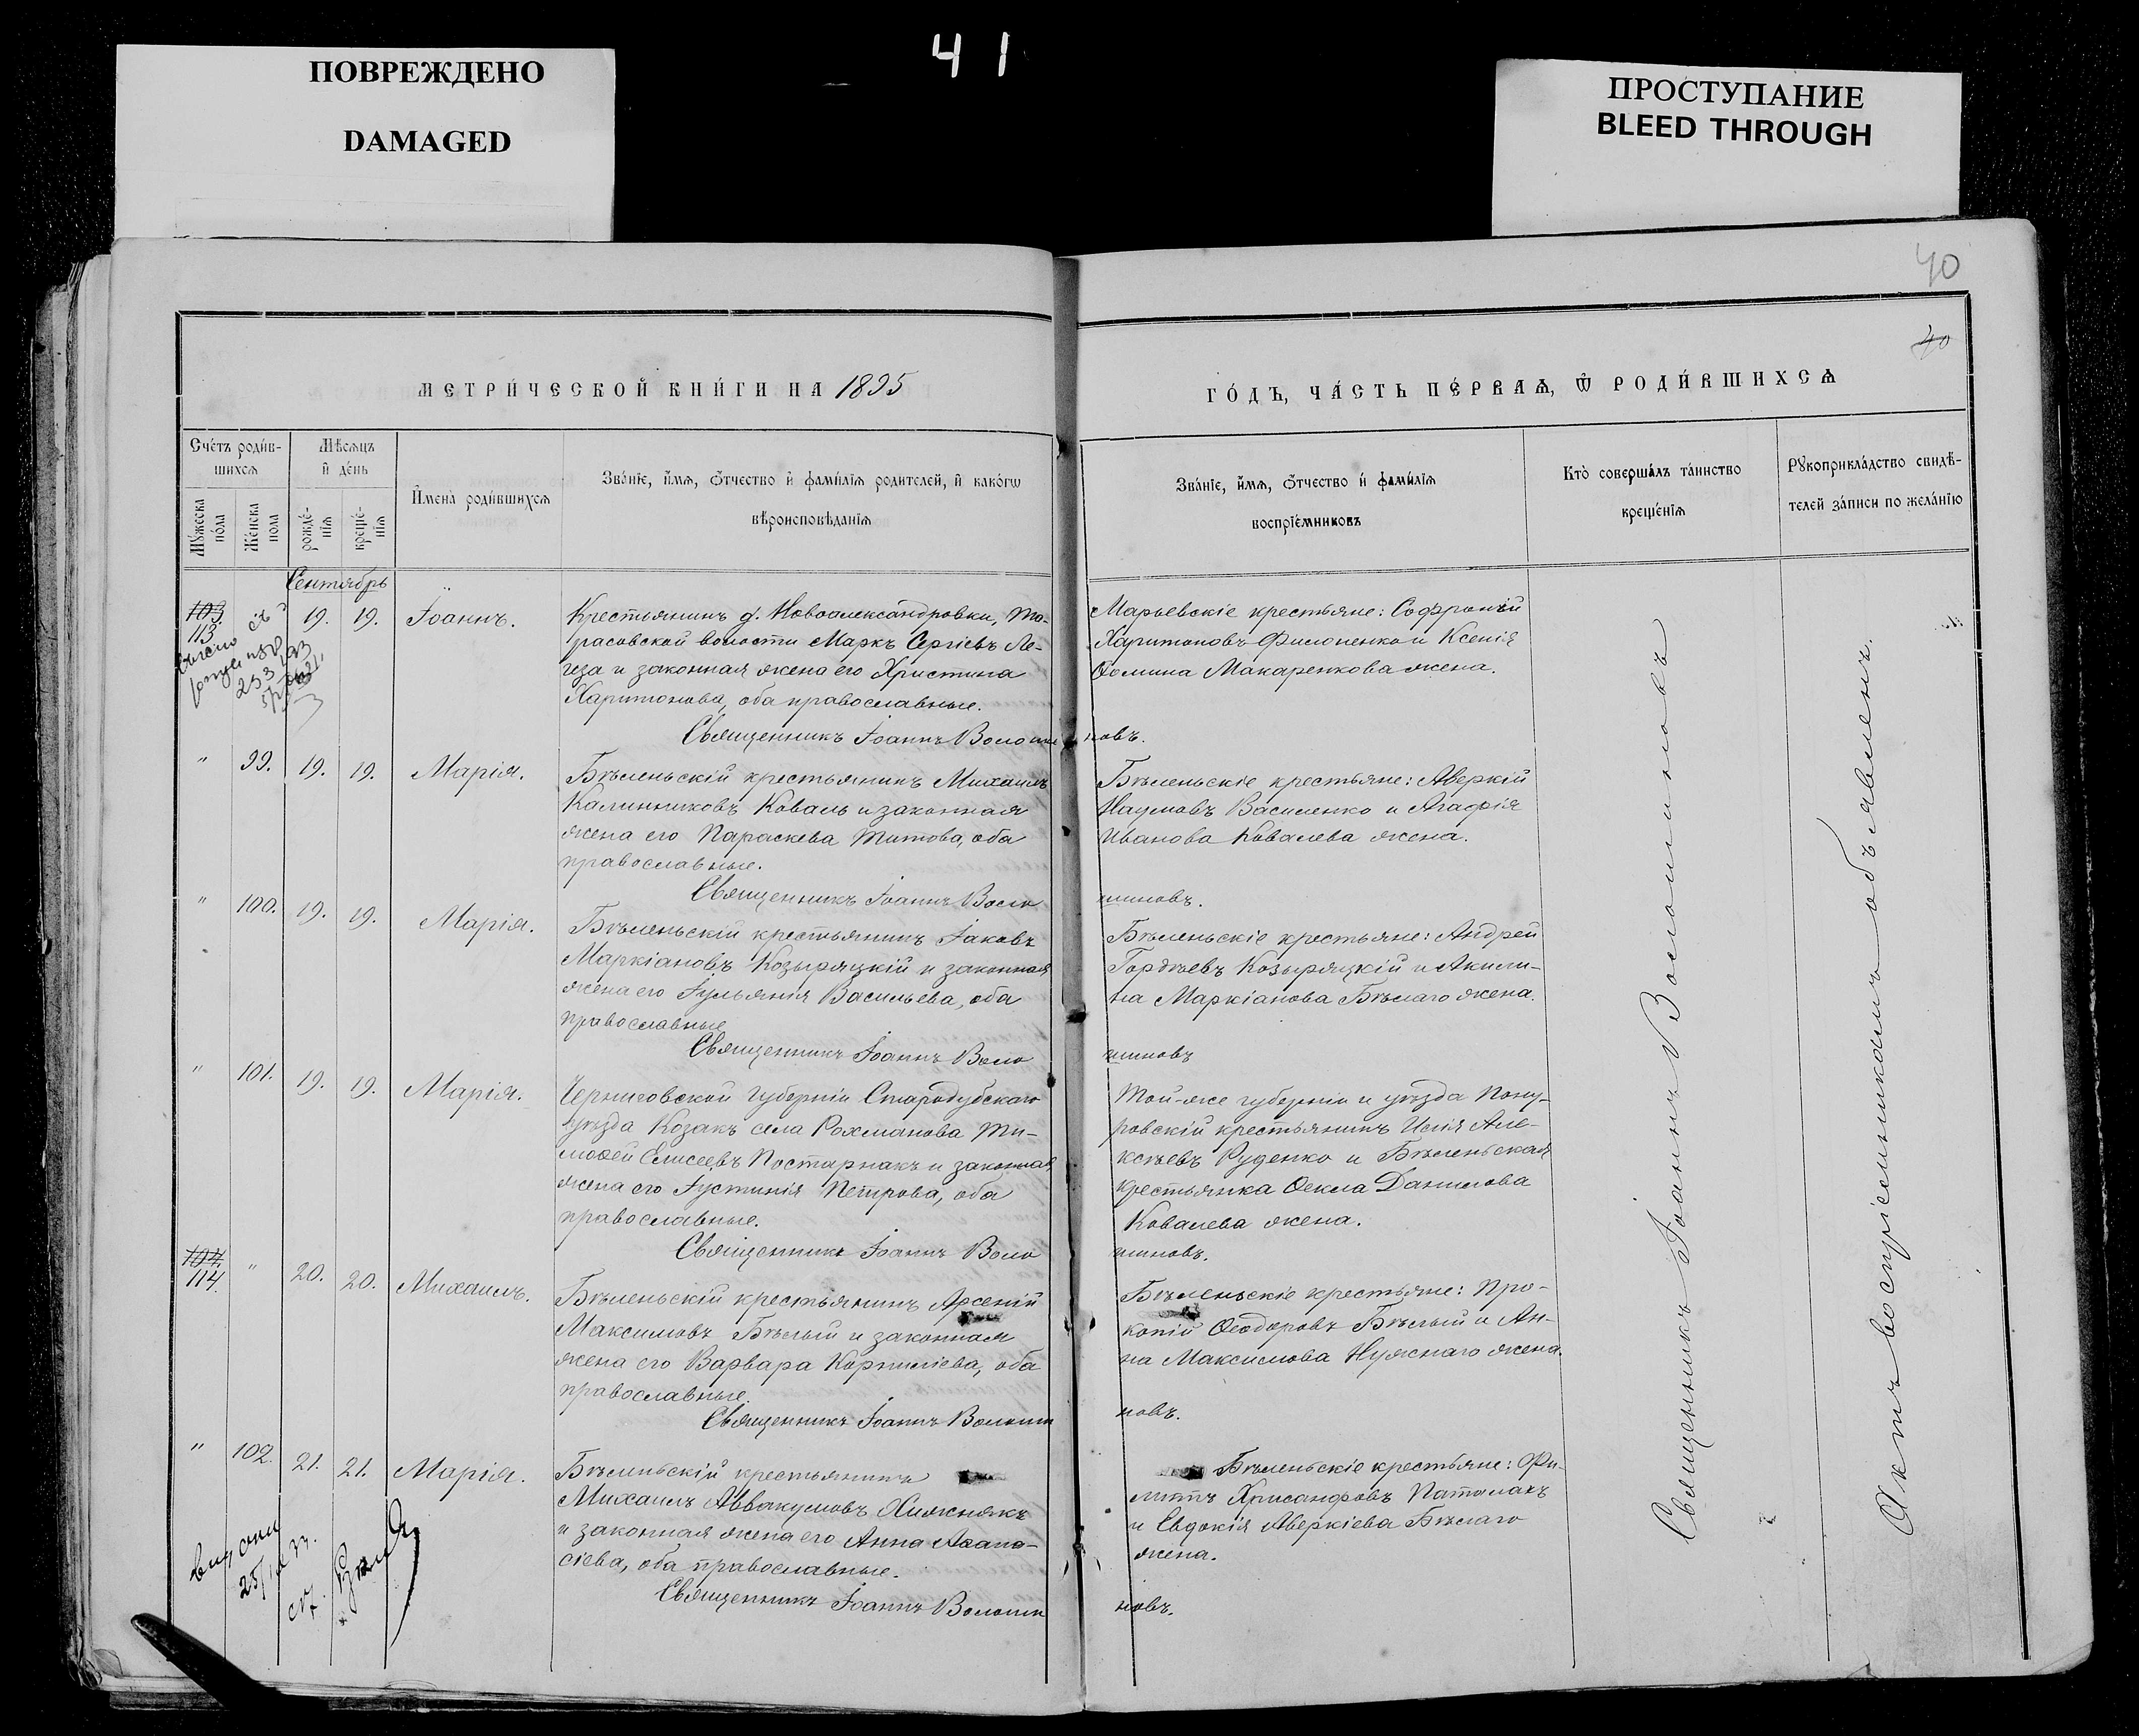 41
ПОВРЕЖДЕНО
DAMAGED
ПРОСТУПАНИЕ
BLEED THROUGH
40
40
МЕТРИ́ЧЕСКОЙ КНИ́ГИ НА 1895
ГО́ДЪ, ЧА́СТЬ ПЕ́РВАѦ, Ѡ҆ РОДИ́ВШИХСѦ
Сче́тъ роди́в-
шихсѧ
Мѣ́сѧцъ
и҆ де́нь
Мꙋ́жеска
по́ла
Же́нска
пола
рожде́-
нїѧ
креще́-
нїѧ
И҆мена̀ роди́вшихсѧ
Зва́нїе, и҆́мѧ, ѻ҆́тчество и҆ фами́лїѧ родителей, и҆ како́гѡ
вѣ́роисповѣ́данїѧ
Зва́нїе, и҆́мѧ, ѻ҆́тчество и҆ фами́лїѧ
воспрїе́мниковъ
Кто̀ соверша́лъ та́инство
креще́нїѧ
Рꙋкоприкла́дство свидѣ́-
телей за́писи по жела́нїю
Сентябрь
103.
113
19.
19.
Іоаннъ.
Крестьянинъ д. Новоалександровки, Та-
расовской волости Маркъ Сергіевъ Ле-
геза и законная жена его Христина
Харитонова, оба православные.
Священникъ Іоаннъ Волошиновъ.
Марьевскіе крестьяне: Софроній
Харитоновъ Филоненко и Ксенія
Ѳомина Макаренкова жена.
"
99.
19.
19.
Марія.
Бѣленьскій крестьянинъ Михаилъ
Калинниковъ Коваль и законная
жена его Параскева Титова, оба
православные.
Священникъ Іоаннъ Волошиновъ.
Бѣленьскіе крестьяне: Аверкій
Наумовъ Василенко и Агафія
Иванова Ковалева жена.
"
100.
19.
19.
Марія.
Бѣленьскій крестьянинъ Іаковъ
Маркіановъ Козыряцкій и законная
жена его Іульянія Васильева, оба
православные
Священникъ Іоаннъ Волошиновъ
Бѣленьскіе крестьяне: Андрей
Гордѣевъ Козыряцкій и Акили-
на Маркіанова Бѣлаго жена.
"
101.
19.
19.
Марія.
Черниговской губерніи Стародубскаго
уѣзда Козакъ села Рохманова Ти-
моѳей Елисеевъ Постарнакъ и законная
жена его Іустинія Петрова, оба
православные.
Священникъ Іоаннъ Волошиновъ.
Той-же губерніи и уѣзда Пону-
ровскій крестьянинъ Илія Але-
ксѣевъ Руденко и Бѣленьская
крестьянка Ѳекла Данилова
Ковалева жена.
104.
114.
"
20.
20.
Михаилъ.
Бѣленьскій крестьянинъ Арсеній
Максимовъ Бѣлый и законная
жена его Варвара Корниліева, оба
православные.
Священникъ Іоаннъ Волошиновъ.
Бѣленьскіе крестьяне: Про-
копій Ѳеодоровъ Бѣлый и Ан-
на Максимова Нужнаго жена.
"
102.
21.
21.
Марія.
Бѣленьскій крестьянинъ
Михаилъ Аввакумовъ Хижнякъ
и законная жена его Анна Аѳана-
сіева, оба православные.
Священникъ Іоаннъ Волошиновъ.
Бѣленьскіе крестьяне: Фи-
липпъ Хрисанфовъ Паталахъ
и Евдокія Аверкіева Бѣлаго
жена.
Священникъ Іоаннъ Волошиновъ
Актъ воспріемникамъ объявленъ.